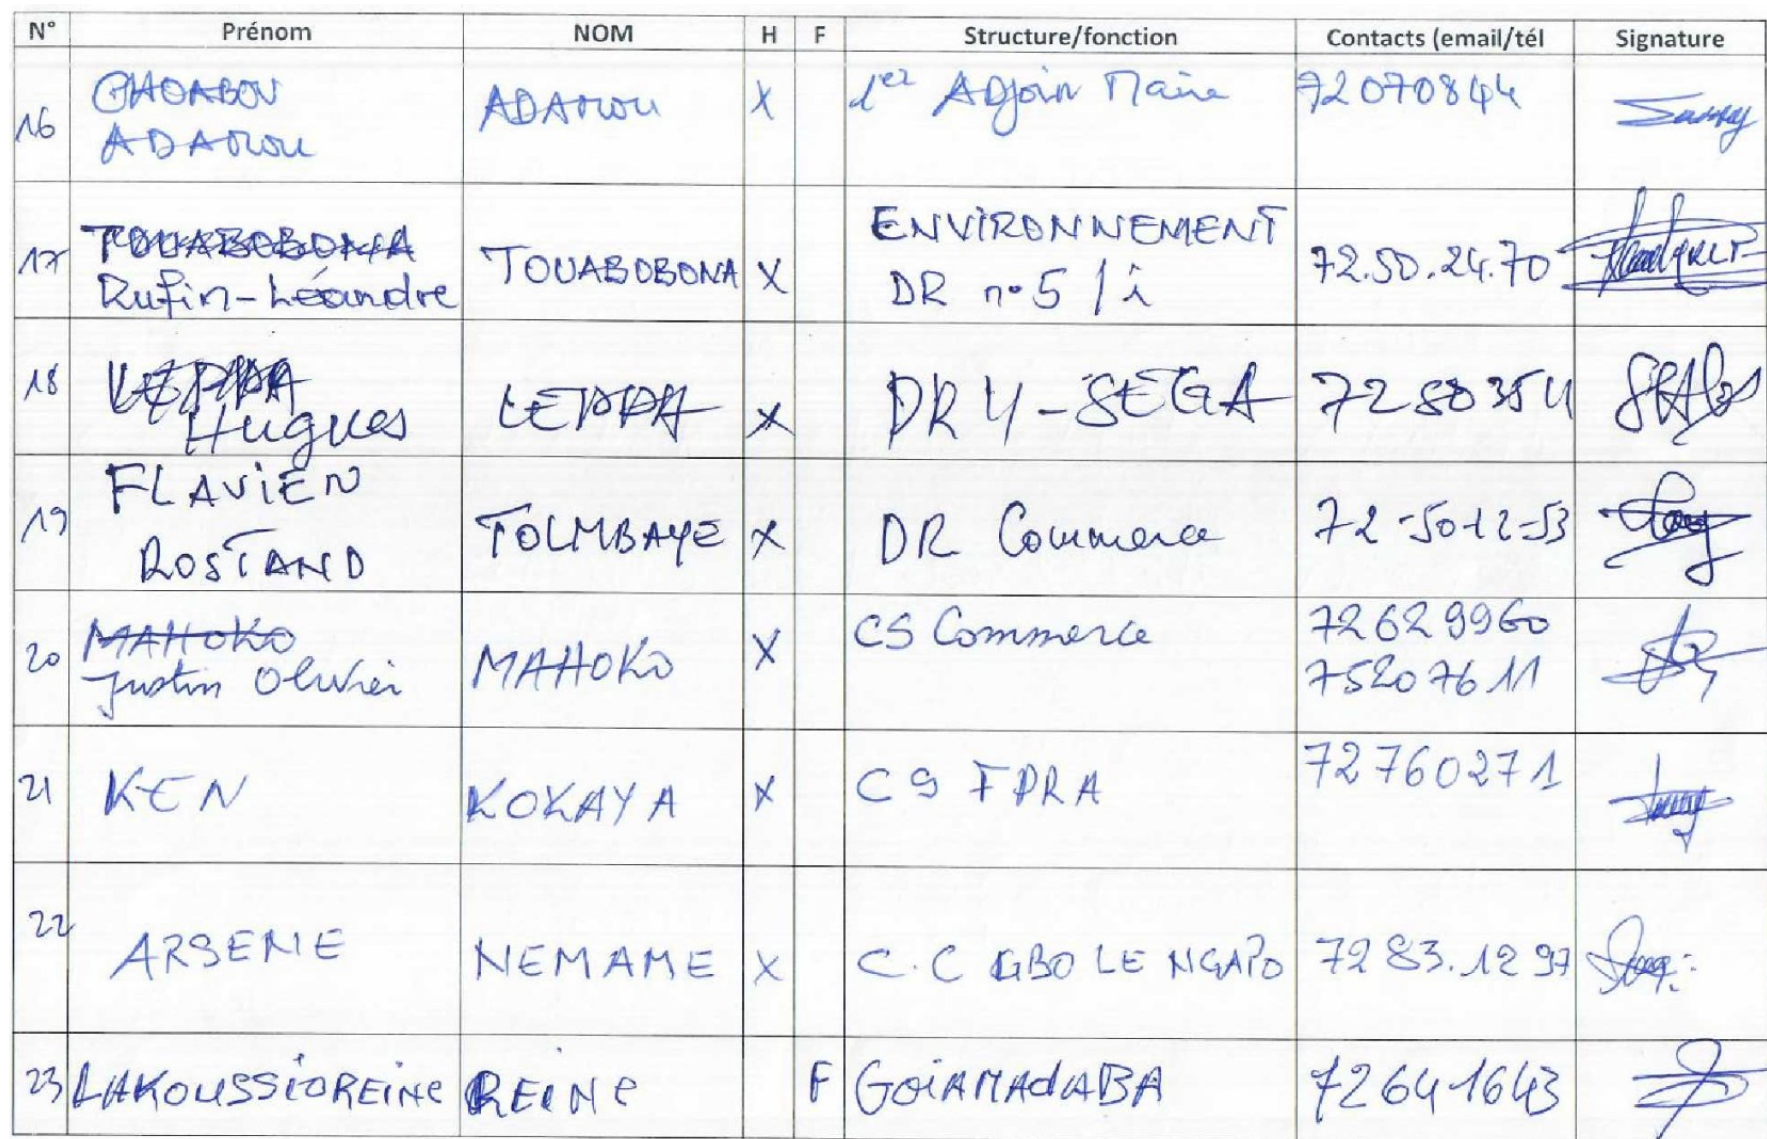 N° Prénom NOM H F Structure/fonction Contacts (email/tél Signature
16 ADAMOU ADAMOU X 1er Adjoin Maire 72070844
17 TOUABOBONA Rufin-Léandre TOUABOBONA X ENVIRONNEMENT DR n°5 / i 72.50.24.70
18 Hugues X DR 4-SEGA 7280354
19 FLAVIEN ROSTAND TOLMBAYE X DR Commerce 72-50-12-53
20 MAHOKO Justin Olivier MAHOKO X CS Commerce 72629960 75207611
21 KEN KOKAYA X CS FPRA 72760271
22 ARSENE NEMAME X C.C GBO LE NGAPO 7283.1297
23 LAKOUSSIOREINE REINE F GOIAMADABA 72641643